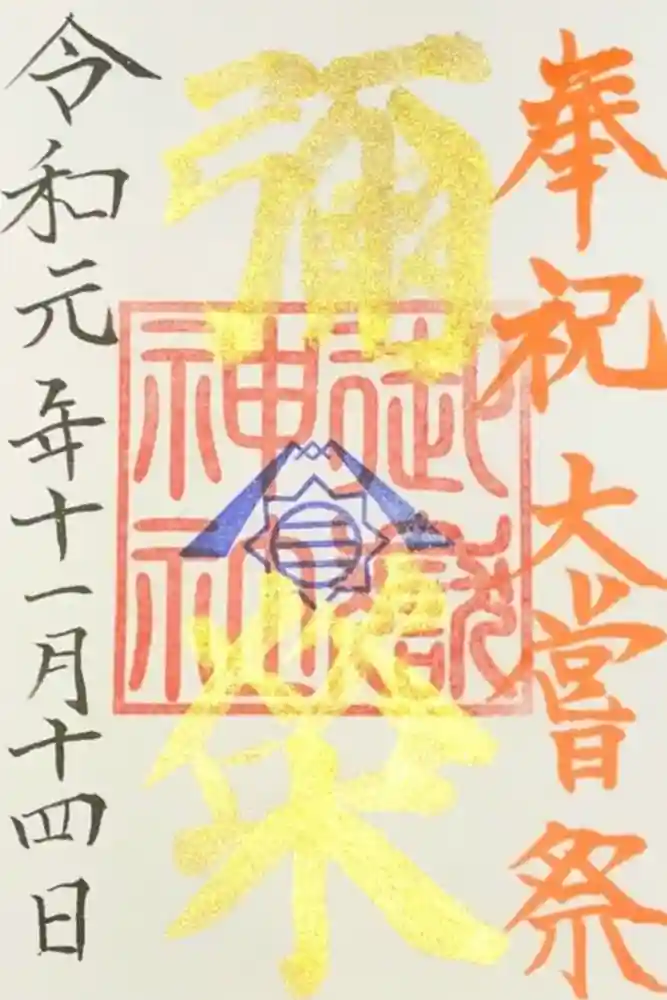 奉祝 大嘗祭
彌榮
御嶽
神社
令和元年十一月十四日